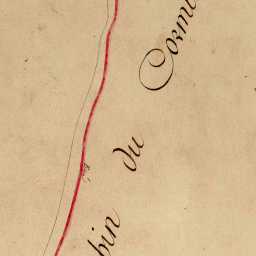 bin du Corm